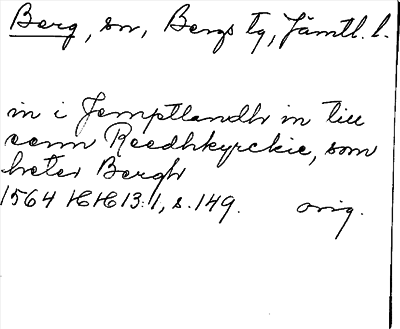 Berg, sn, Bergs tg, Jämtl. l.
in i Jemptlandh in till
senn Reedhkyrckie, som
heter Bergh
1564 HH 13:1, s. 149. orig.